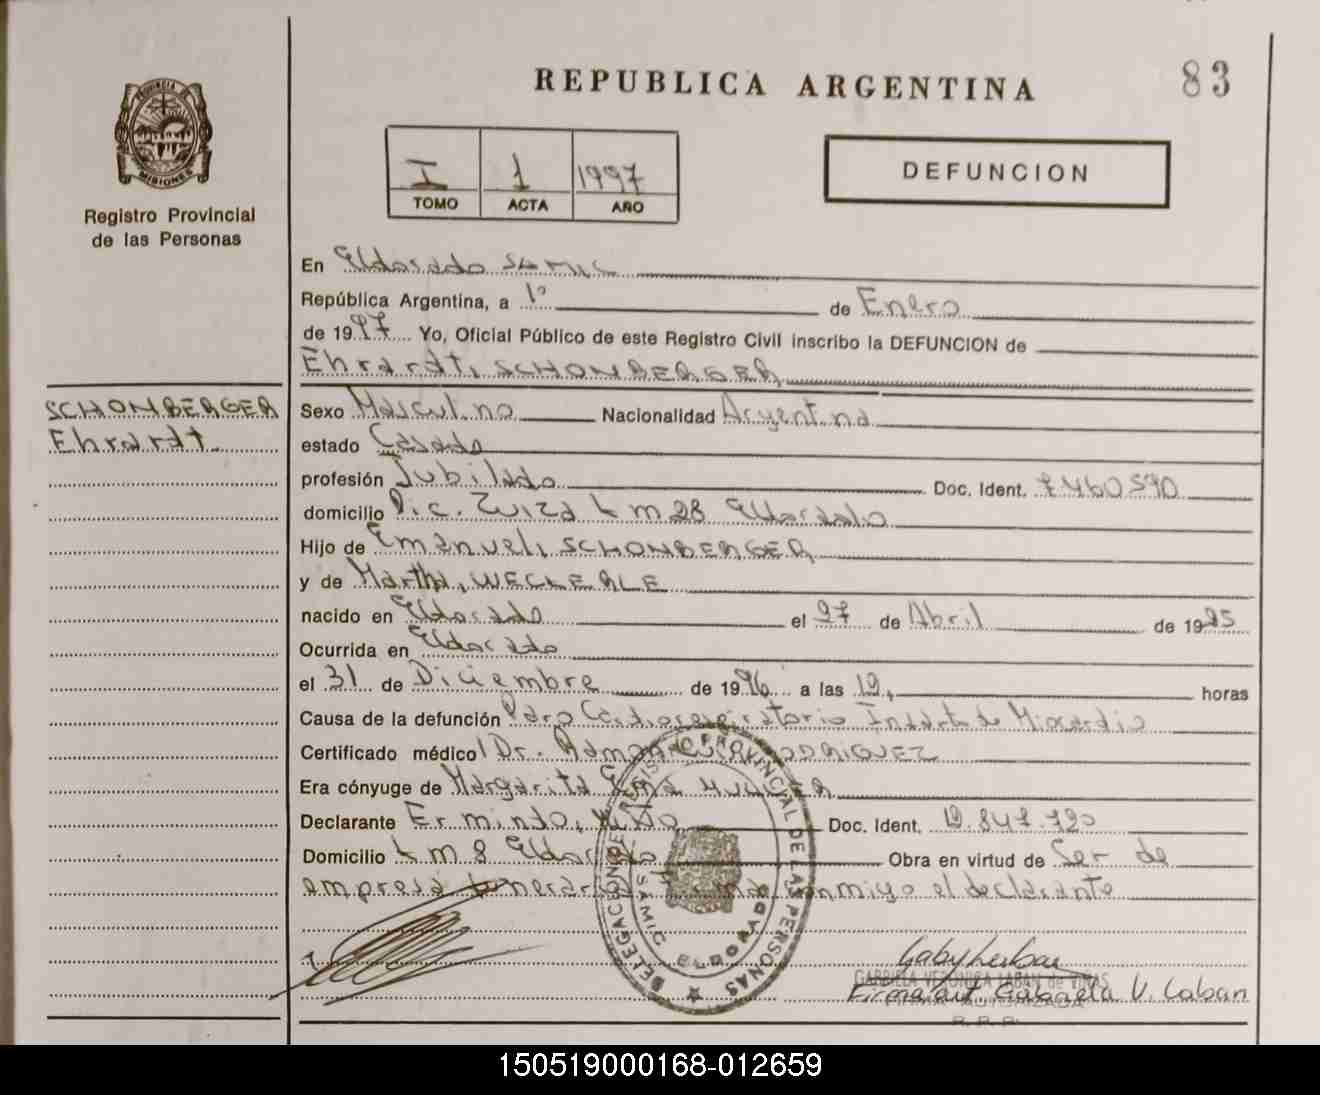 REPUBLICA ARGENTINA
83
PROVINCIA DE
MISIONES
Registro Provincial
de las Personas
I 1 1997
TOMO ACTA AÑO
DEFUNCION
En Eldorado SAMIC
República Argentina, a 1º de Enero
de 1997 Yo, Oficial Público de este Registro Civil inscribo la DEFUNCION de
Ehrardt, SCHONBERGER
SCHONBERGER
Ehrardt
Sexo Masculino Nacionalidad Argentina
estado Casado
profesión Jubilado Doc. Ident. 7.460.590
domicilio Pic. Km 28 Eldorado
Hijo de Emanuel, SCHONBERGER
y de Martha, WECLERLE
nacido en Eldorado el 27 de Abril de 19
Ocurrida en Eldorado
el 31 de Diciembre de 1996 a las 19, horas
Causa de la defunción Paro Cardiorespiratorio Infarto de Miocardio
Certificado médico Dr. Ramon RODRIGUEZ
Era cónyuge de Margarita
Declarante Ermindo, Doc. Ident.
Domicilio Km 8 Eldorado Obra en virtud de Ser de
empresa funeraria Firma conmigo el declarante
DELEGACION DE REGISTRO PROVINCIAL DE LAS PERSONAS
SAMIC ELDORADO
GABRIELA VERONICA LABAN de
Firma aut. Gabriela V. Laban
AUTORIZADA
R. P. P.
150519000168-012659